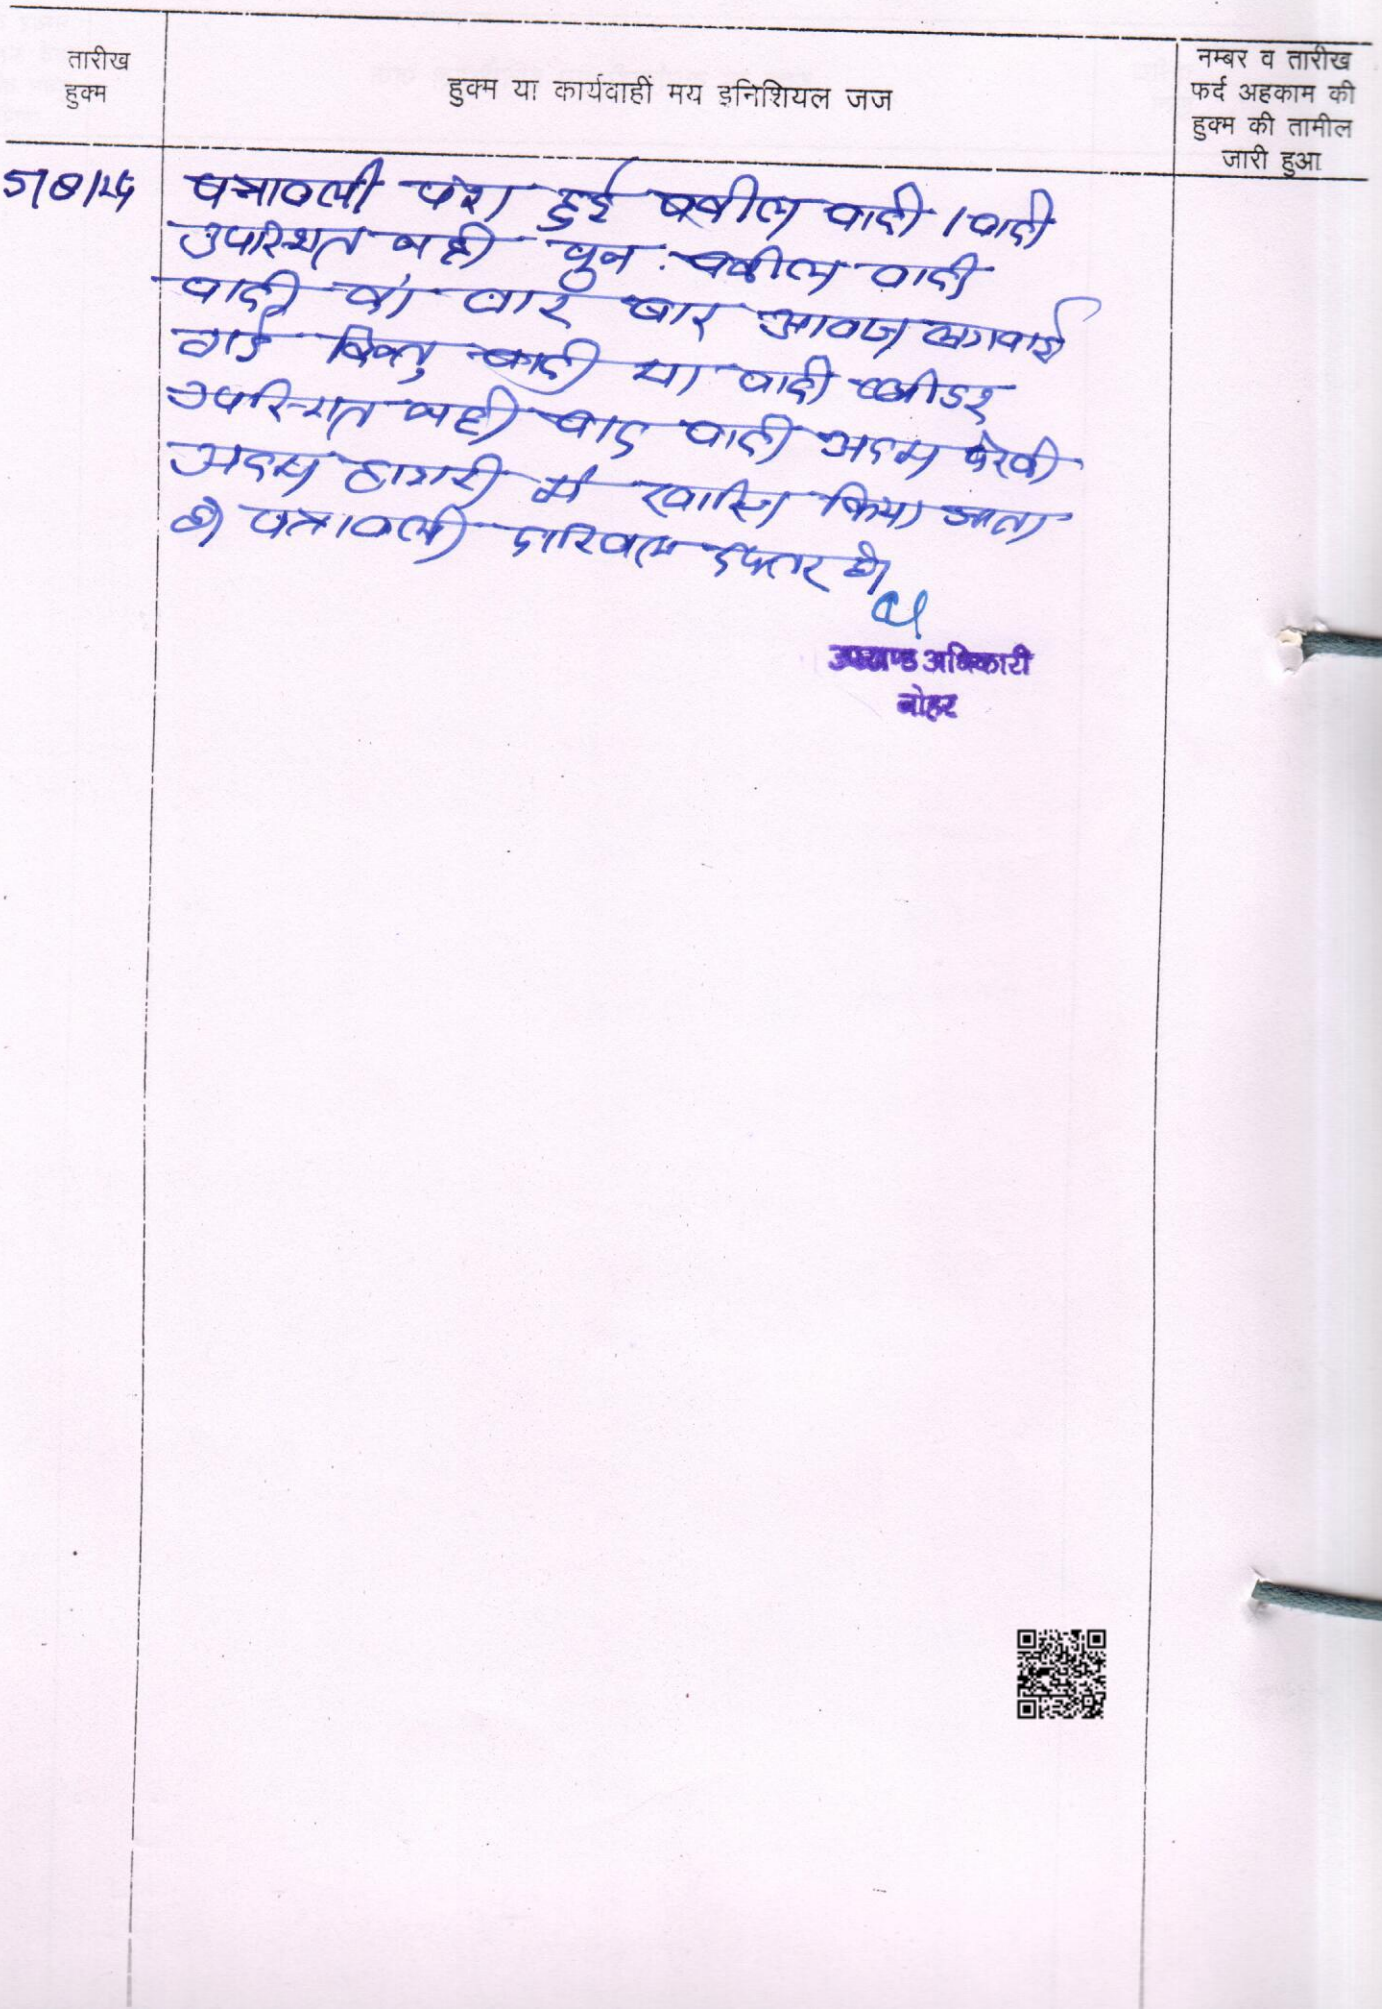 तारीख
हुक्म
हुक्म या कार्यवाहीं मय इनिशियल जज
नम्बर व तारीख
फर्द अहकाम की
हुक्म की तामील
जारी हुआ
पत्रावली पेश हुई वकील वादी / वादी
उपस्थित नही पुन: वकील वादी
वादी को बार बार आवाज लगवाई
गई किन्तु वादी या वादी प्लीडर
उपस्थित नही वाद वादी अदम पेरवी
अदम हाजरी में खारिज किया जाता
है पत्रावली दाखिल दफ्तर हो
उपखण्ड अधिकारी
नोहर